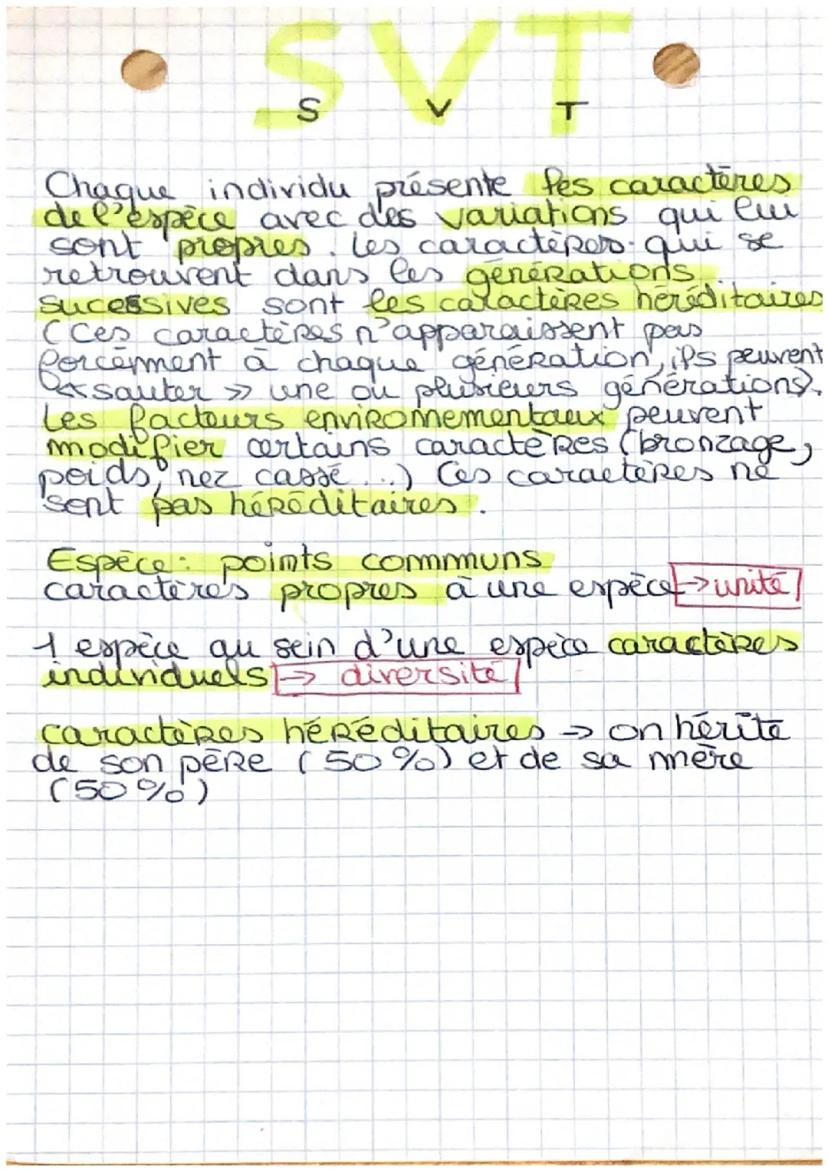 SVT
S V T
Chaque individu présente les caractères
de l'espèce avec des variations qui lui
sont propres. Les caractères qui se
retrouvent dans les générations
sucessives sont les caractères héréditaires
(Ces caractères n'apparaissent pas
forcément à chaque génération, ils peuvent
« sauter » une ou plusieurs générations).
Les facteurs environnementaux peuvent
modifier certains caractères (bronzage,
poids, nez cassé...) Ces caractères ne
sont pas héréditaires.
Espèce: points communs
caractères propres à une espèce → unité
1 espèce au sein d'une espèce caractères
individuels → diversité
caractères héréditaires → on hérite
de son père (50%) et de sa mère
(50%)